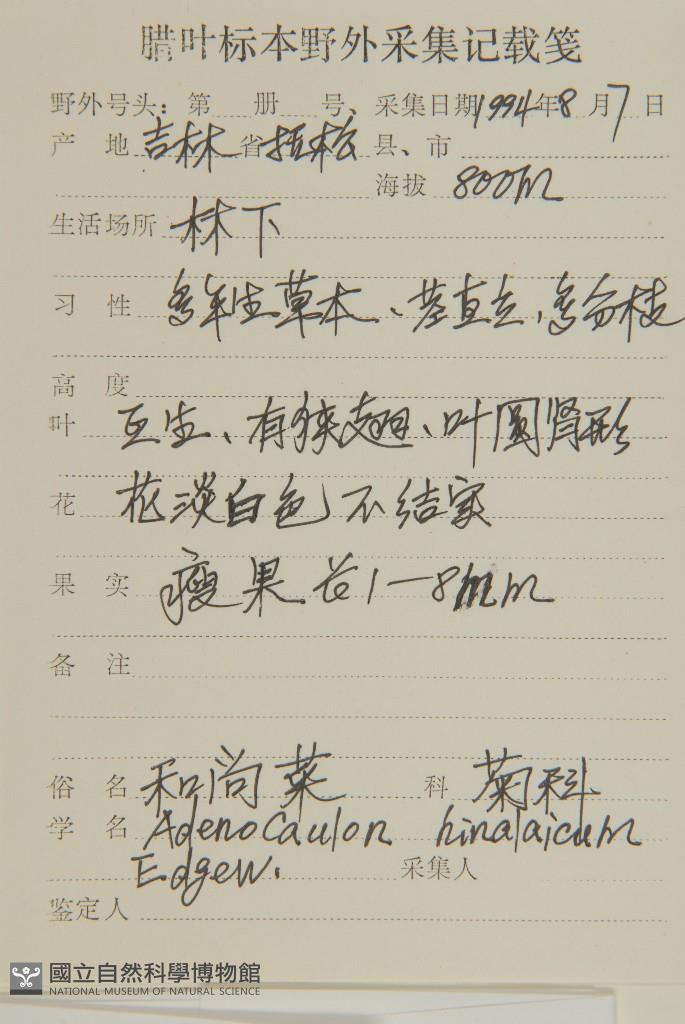 腊叶标本野外采集记载笺
野外号头：第 册 号、采集日期1994年8月7日
产 地 吉林省 抚松 县、市
海拔 800m
生活场所 林下
习 性 多年生草本、茎直立，多分枝
高 度
叶 互生、有狭翅、叶圆肾形
花 花淡白色不结实
果 实 瘦果长1—8mm
备 注
俗 名 和尚菜 科 菊科
学 名 Adenocaulon hinalaicum
Edgew. 采集人
鉴定人
國立自然科學博物館
NATIONAL MUSEUM OF NATURAL SCIENCE